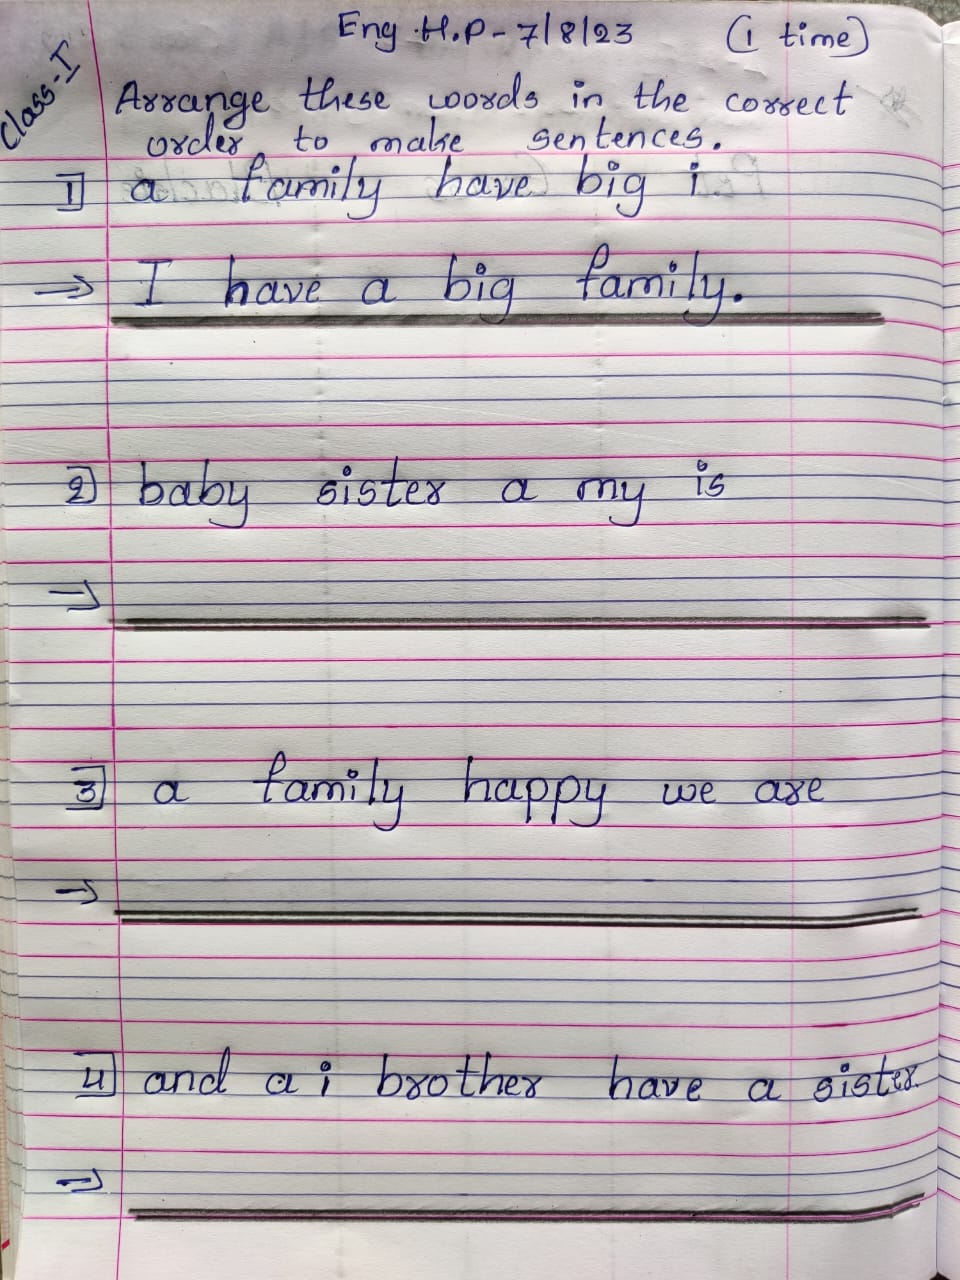 Eng H.P - 7/8/23 (1 time)
Class-I
Arrange these words in the correct
order to make sentences.
1] a family have big i.
→ I have a big family.
2] baby sister a my is
→
3] a family happy we are
→
4] and a i brother have a sister.
→